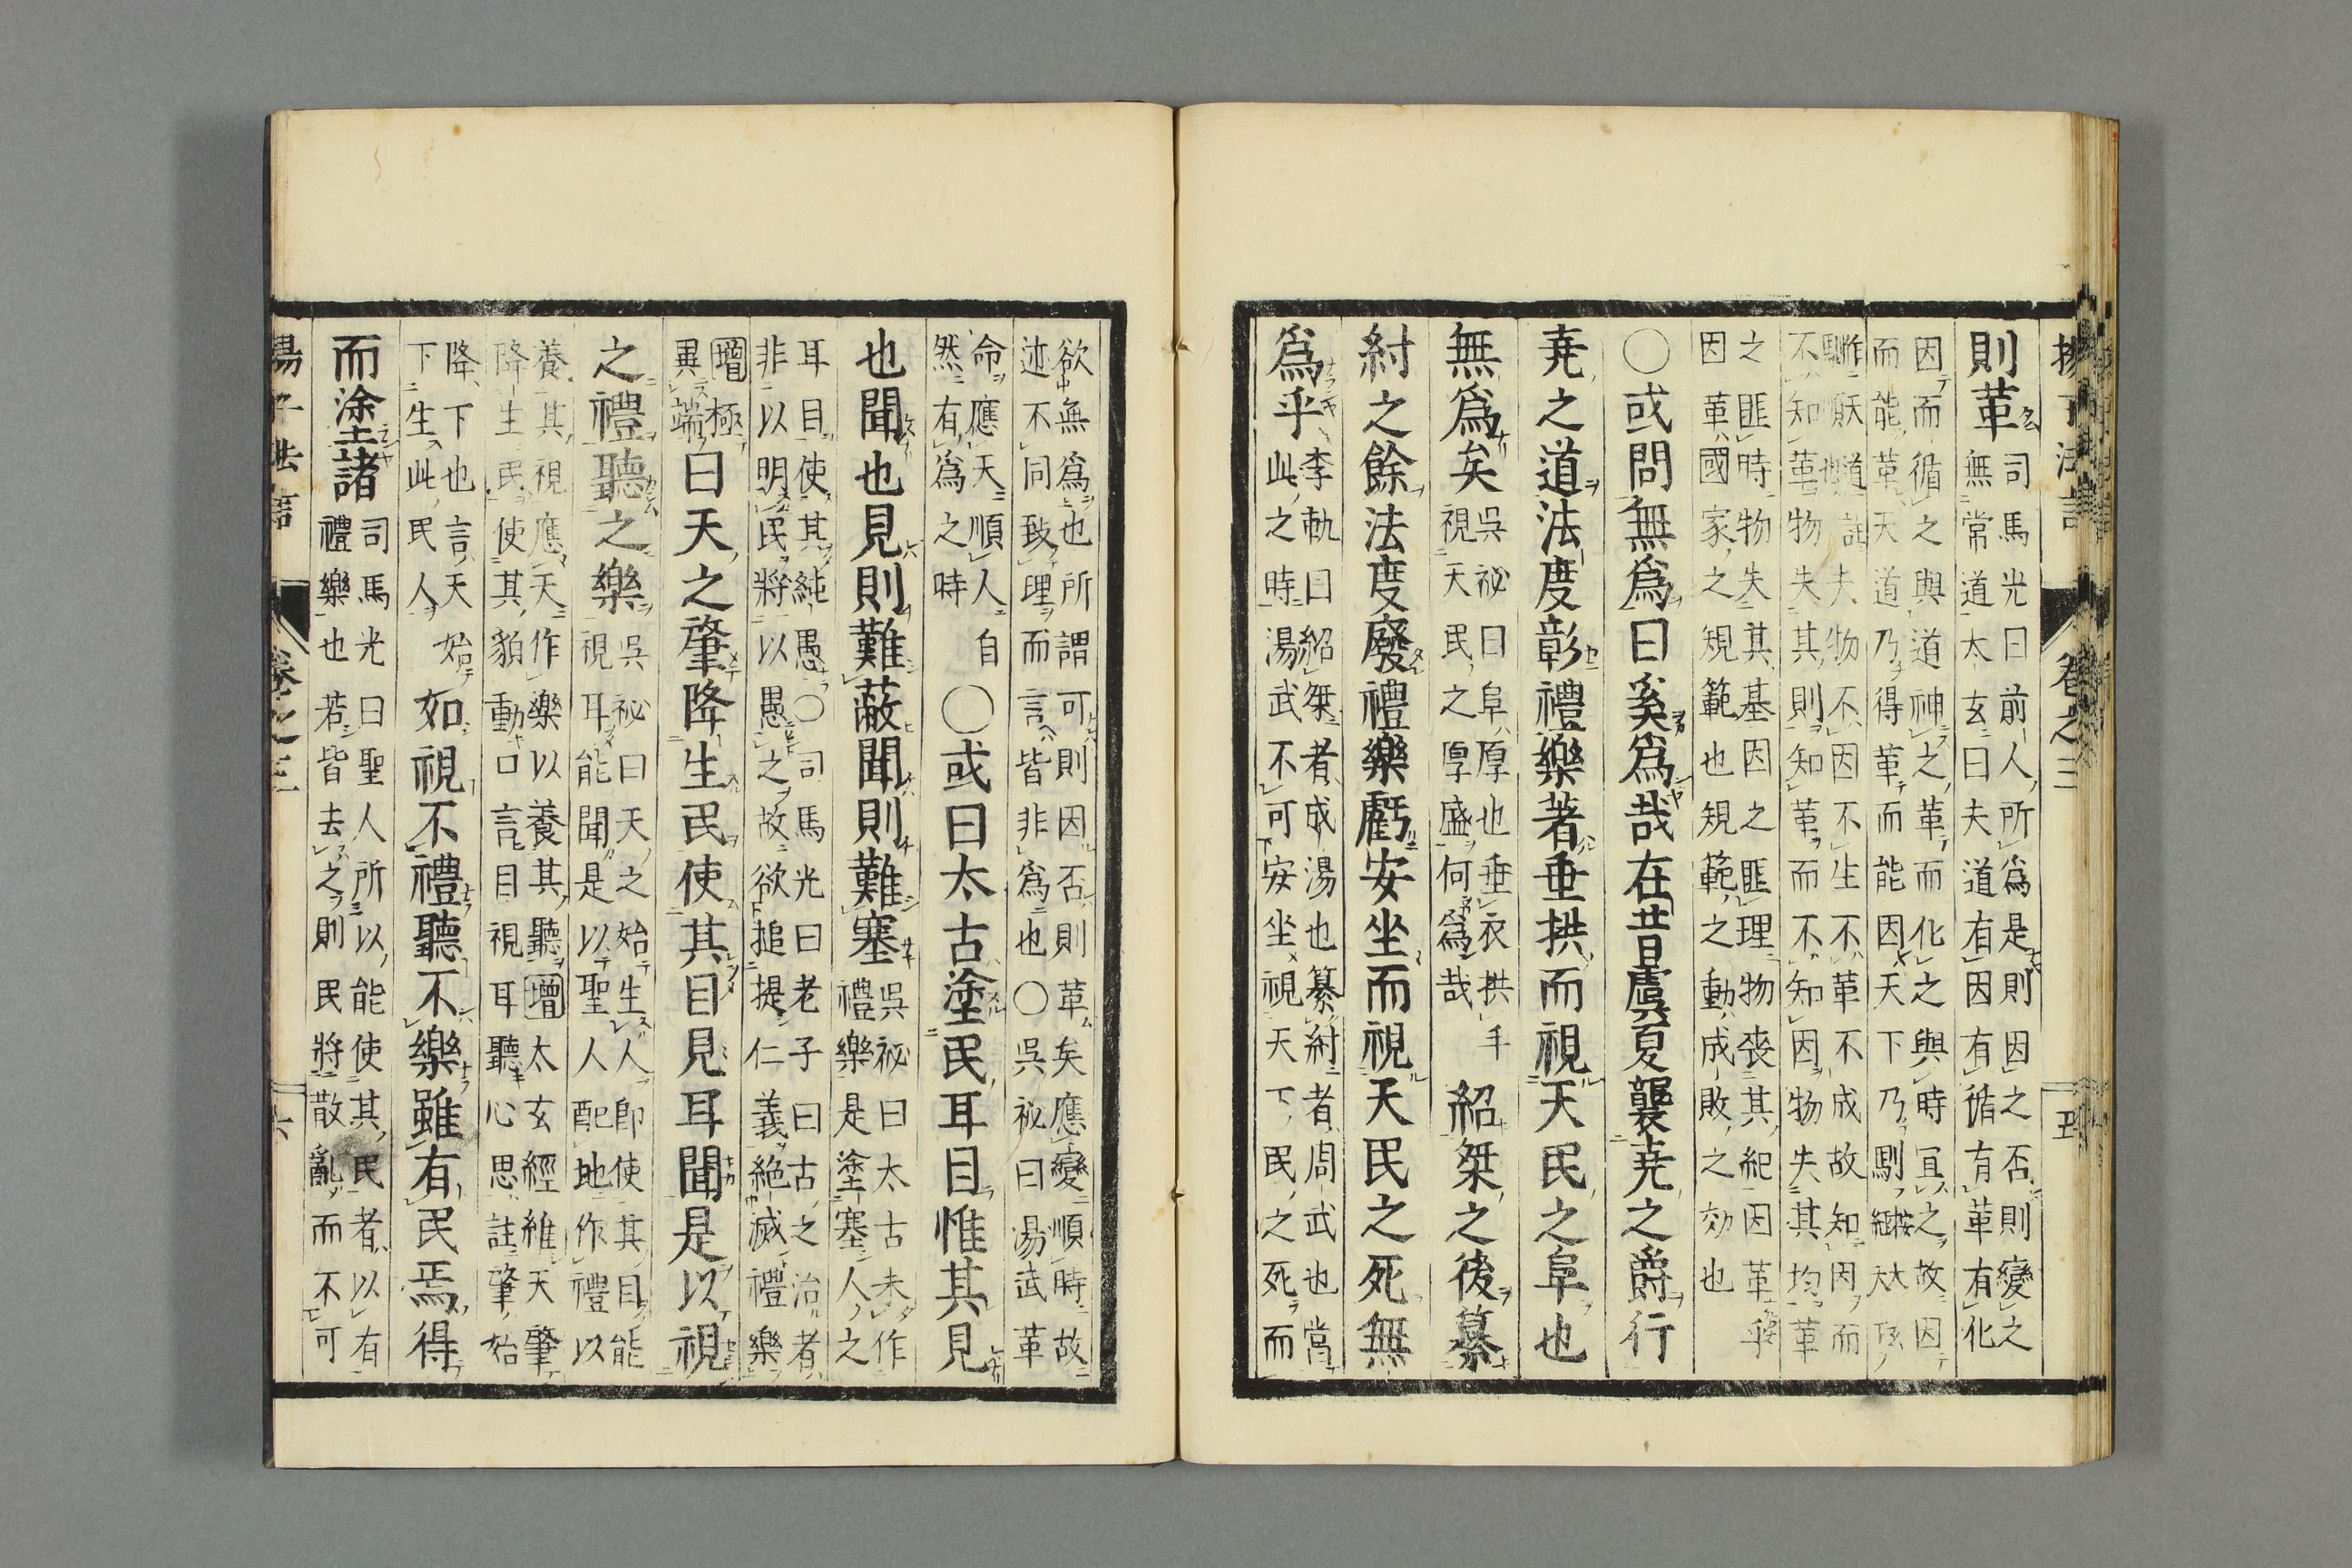 卷之三
則革司馬光曰前人所爲是則因之否則變之
無常道太玄曰夫道有因有循有革有化
因而循之與道神之革而化之與時宜之故因
而能革天道乃得革而能因天下乃馴
夫物不因不生不革不成故知因而
不知革物失其則知革而不知因物失其均革
之匪時物失其基因之匪理物喪其紀因革乎
因革國家之規範也規範之動成敗之效也
○或問無爲曰奚爲哉在昔虞夏襲堯之爵行
堯之道法度彰禮樂著垂拱而視天民之阜也
無爲矣吳祕曰阜厚也垂衣拱手
視天民之厚盛何爲哉
紹桀之後纂
紂之餘法度廢禮樂虧安坐而視天民之死無
爲乎李軌曰紹桀者成湯也纂紂者周武也當
此之時湯武不可安坐視天下民之死而
欲無爲也所謂可則因否則革矣應變順時故
迹不同致理而言皆非爲也○吳祕曰湯武革
命應天順人自
然有爲之時
○或曰太古塗民耳目惟其見
也聞也見則難蔽聞則難塞吳祕曰太古未作
禮樂是塗塞人之
耳目使其純愚○司馬光曰老子曰古之治者
非以明民將以愚之故欲搥提仁義絶滅禮樂
增極
異端
曰天之肇降生民使其目見耳聞是以視
之禮聽之樂吳祕曰天之始生人即使其目能
視耳能聞是以聖人配地作禮以
養其視應天作樂以養其聽增太玄經維天肇
降生民使其貌動口言目視耳聽心思註肇始
降下也言天始
下生此民人
如視不禮聽不樂雖有民焉得
而塗諸司馬光曰聖人所以能使其民者以有
禮樂也若皆去之則民將散亂而不可
卷之三